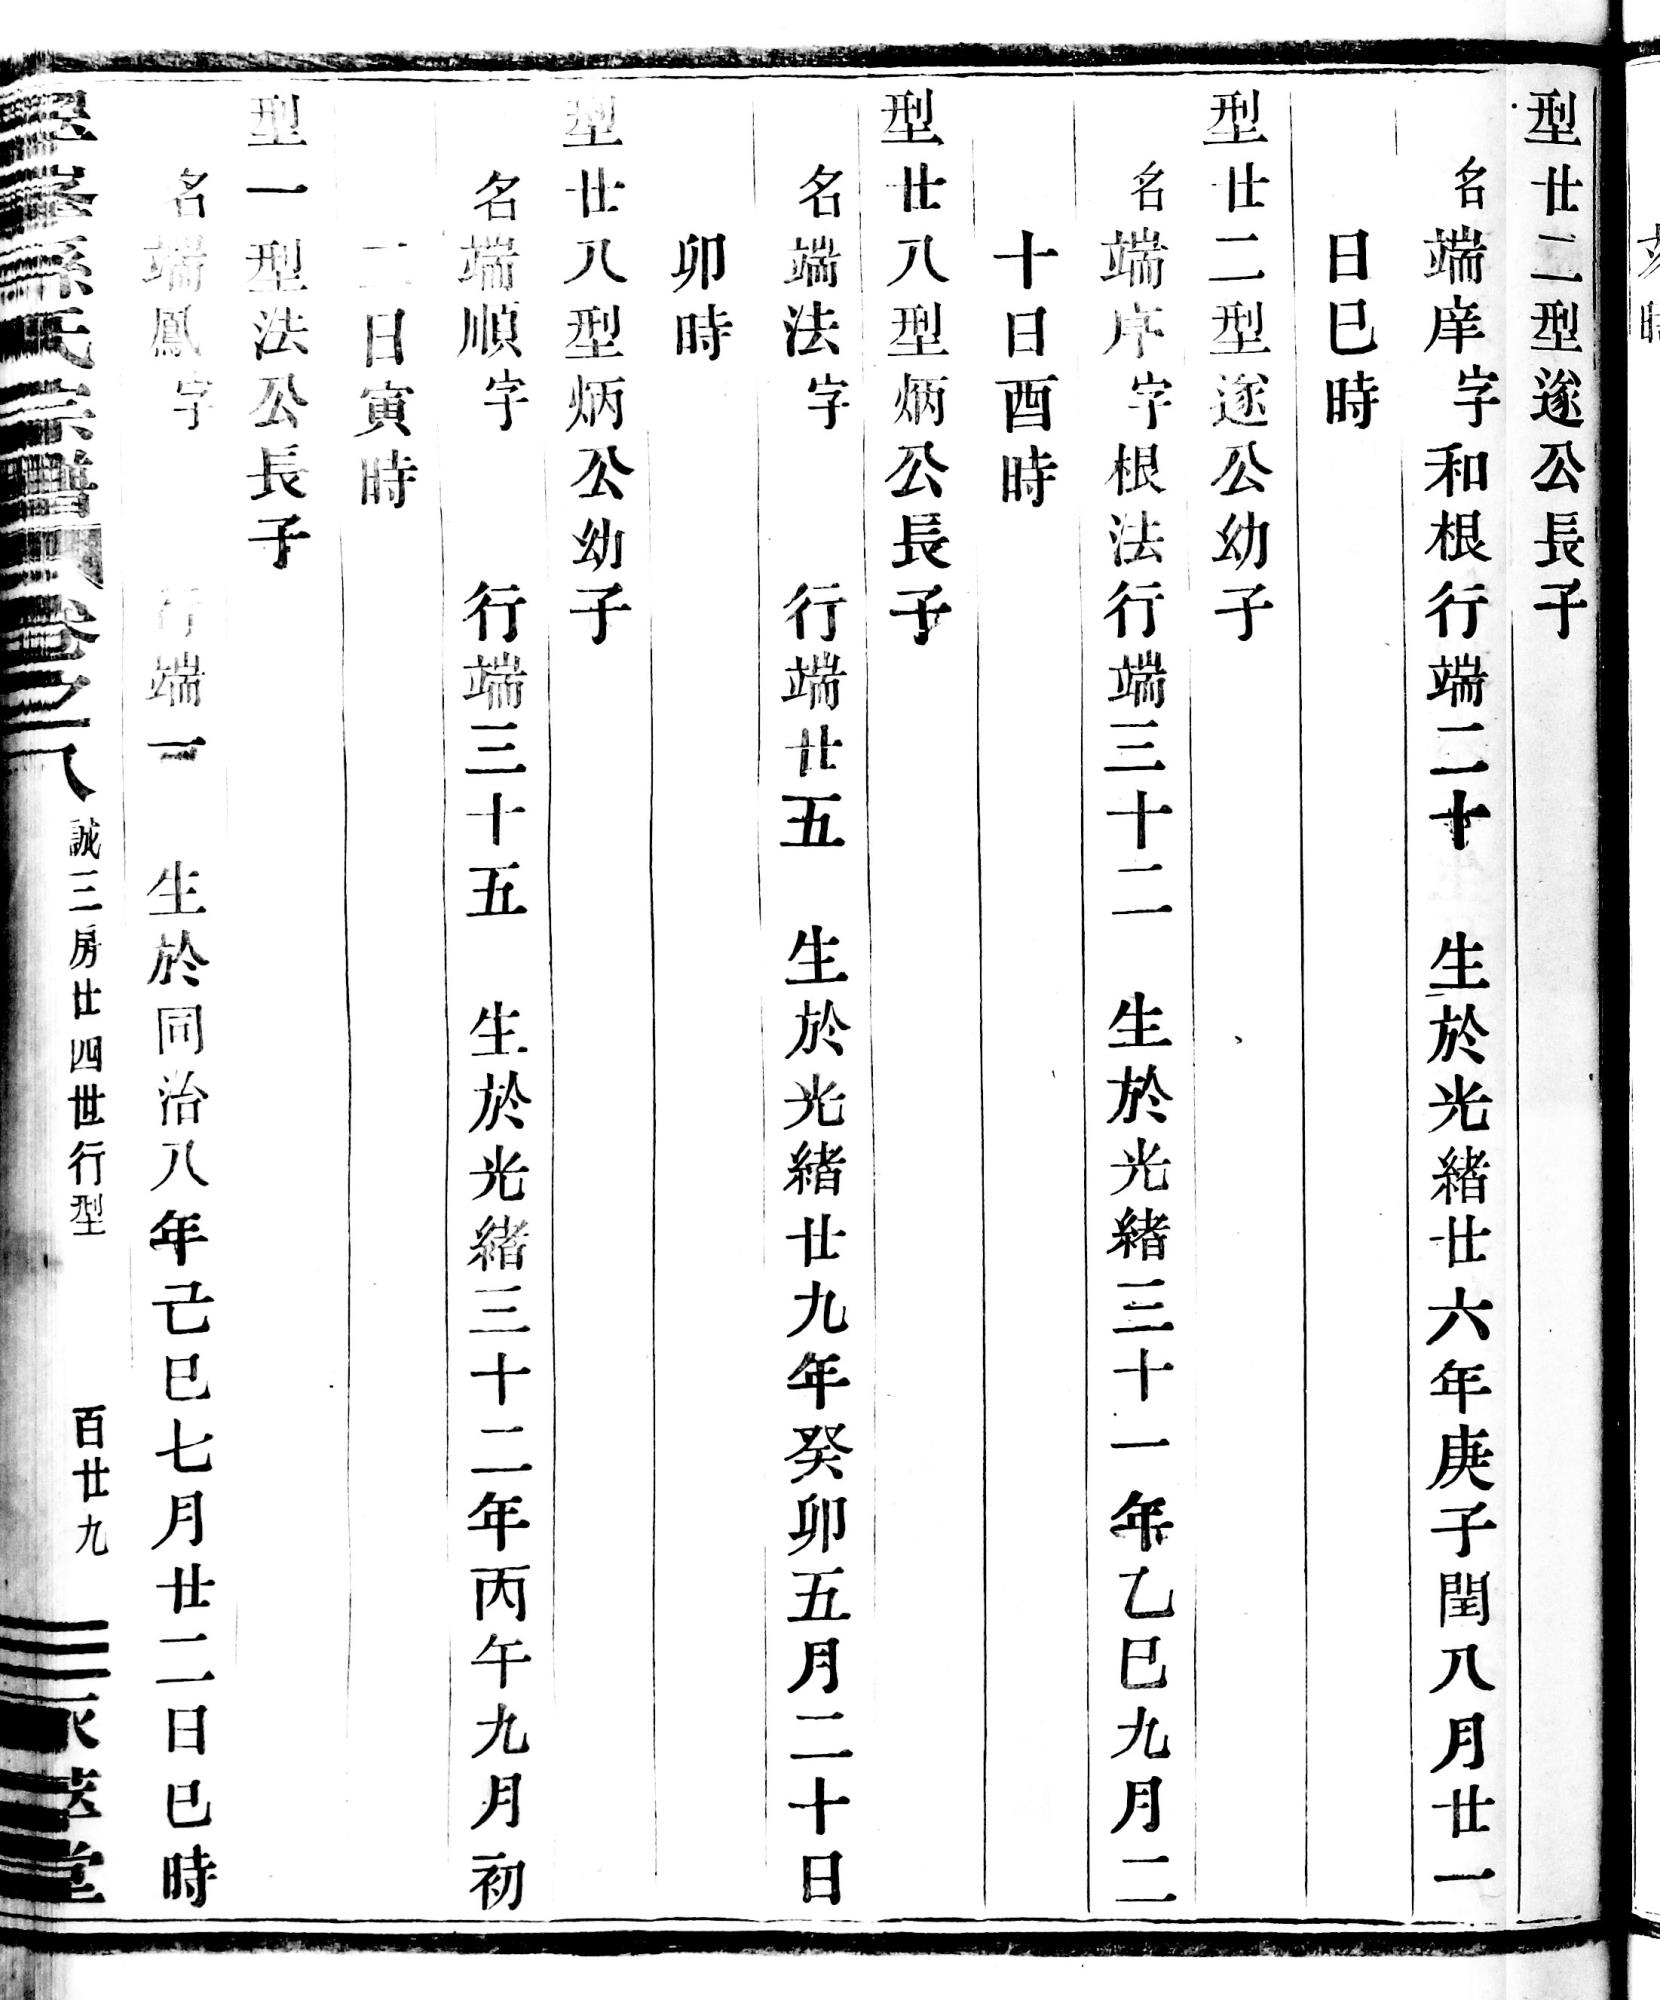 型廿二型遂公長子
名端庠字和根行端二十　生於光緒廿六年庚子閏八月廿一
日巳時
型廿二型遂公幼子
名端序字根法行端三十二　生於光緒三十一年乙巳九月二
十日酉時
型廿八型炳公長子
名端法字　行端廿五　生於光緒廿九年癸卯五月二十日
卯時
型廿八型炳公幼子
名端順字　行端三十五　生於光緒三十二年丙午九月初
二日寅時
型一型法公長子
名端鳳字　行端一　生於同治八年己巳七月廿二日巳時
孫氏宗譜　卷之八　誠三房廿四世行型　百廿九　堂